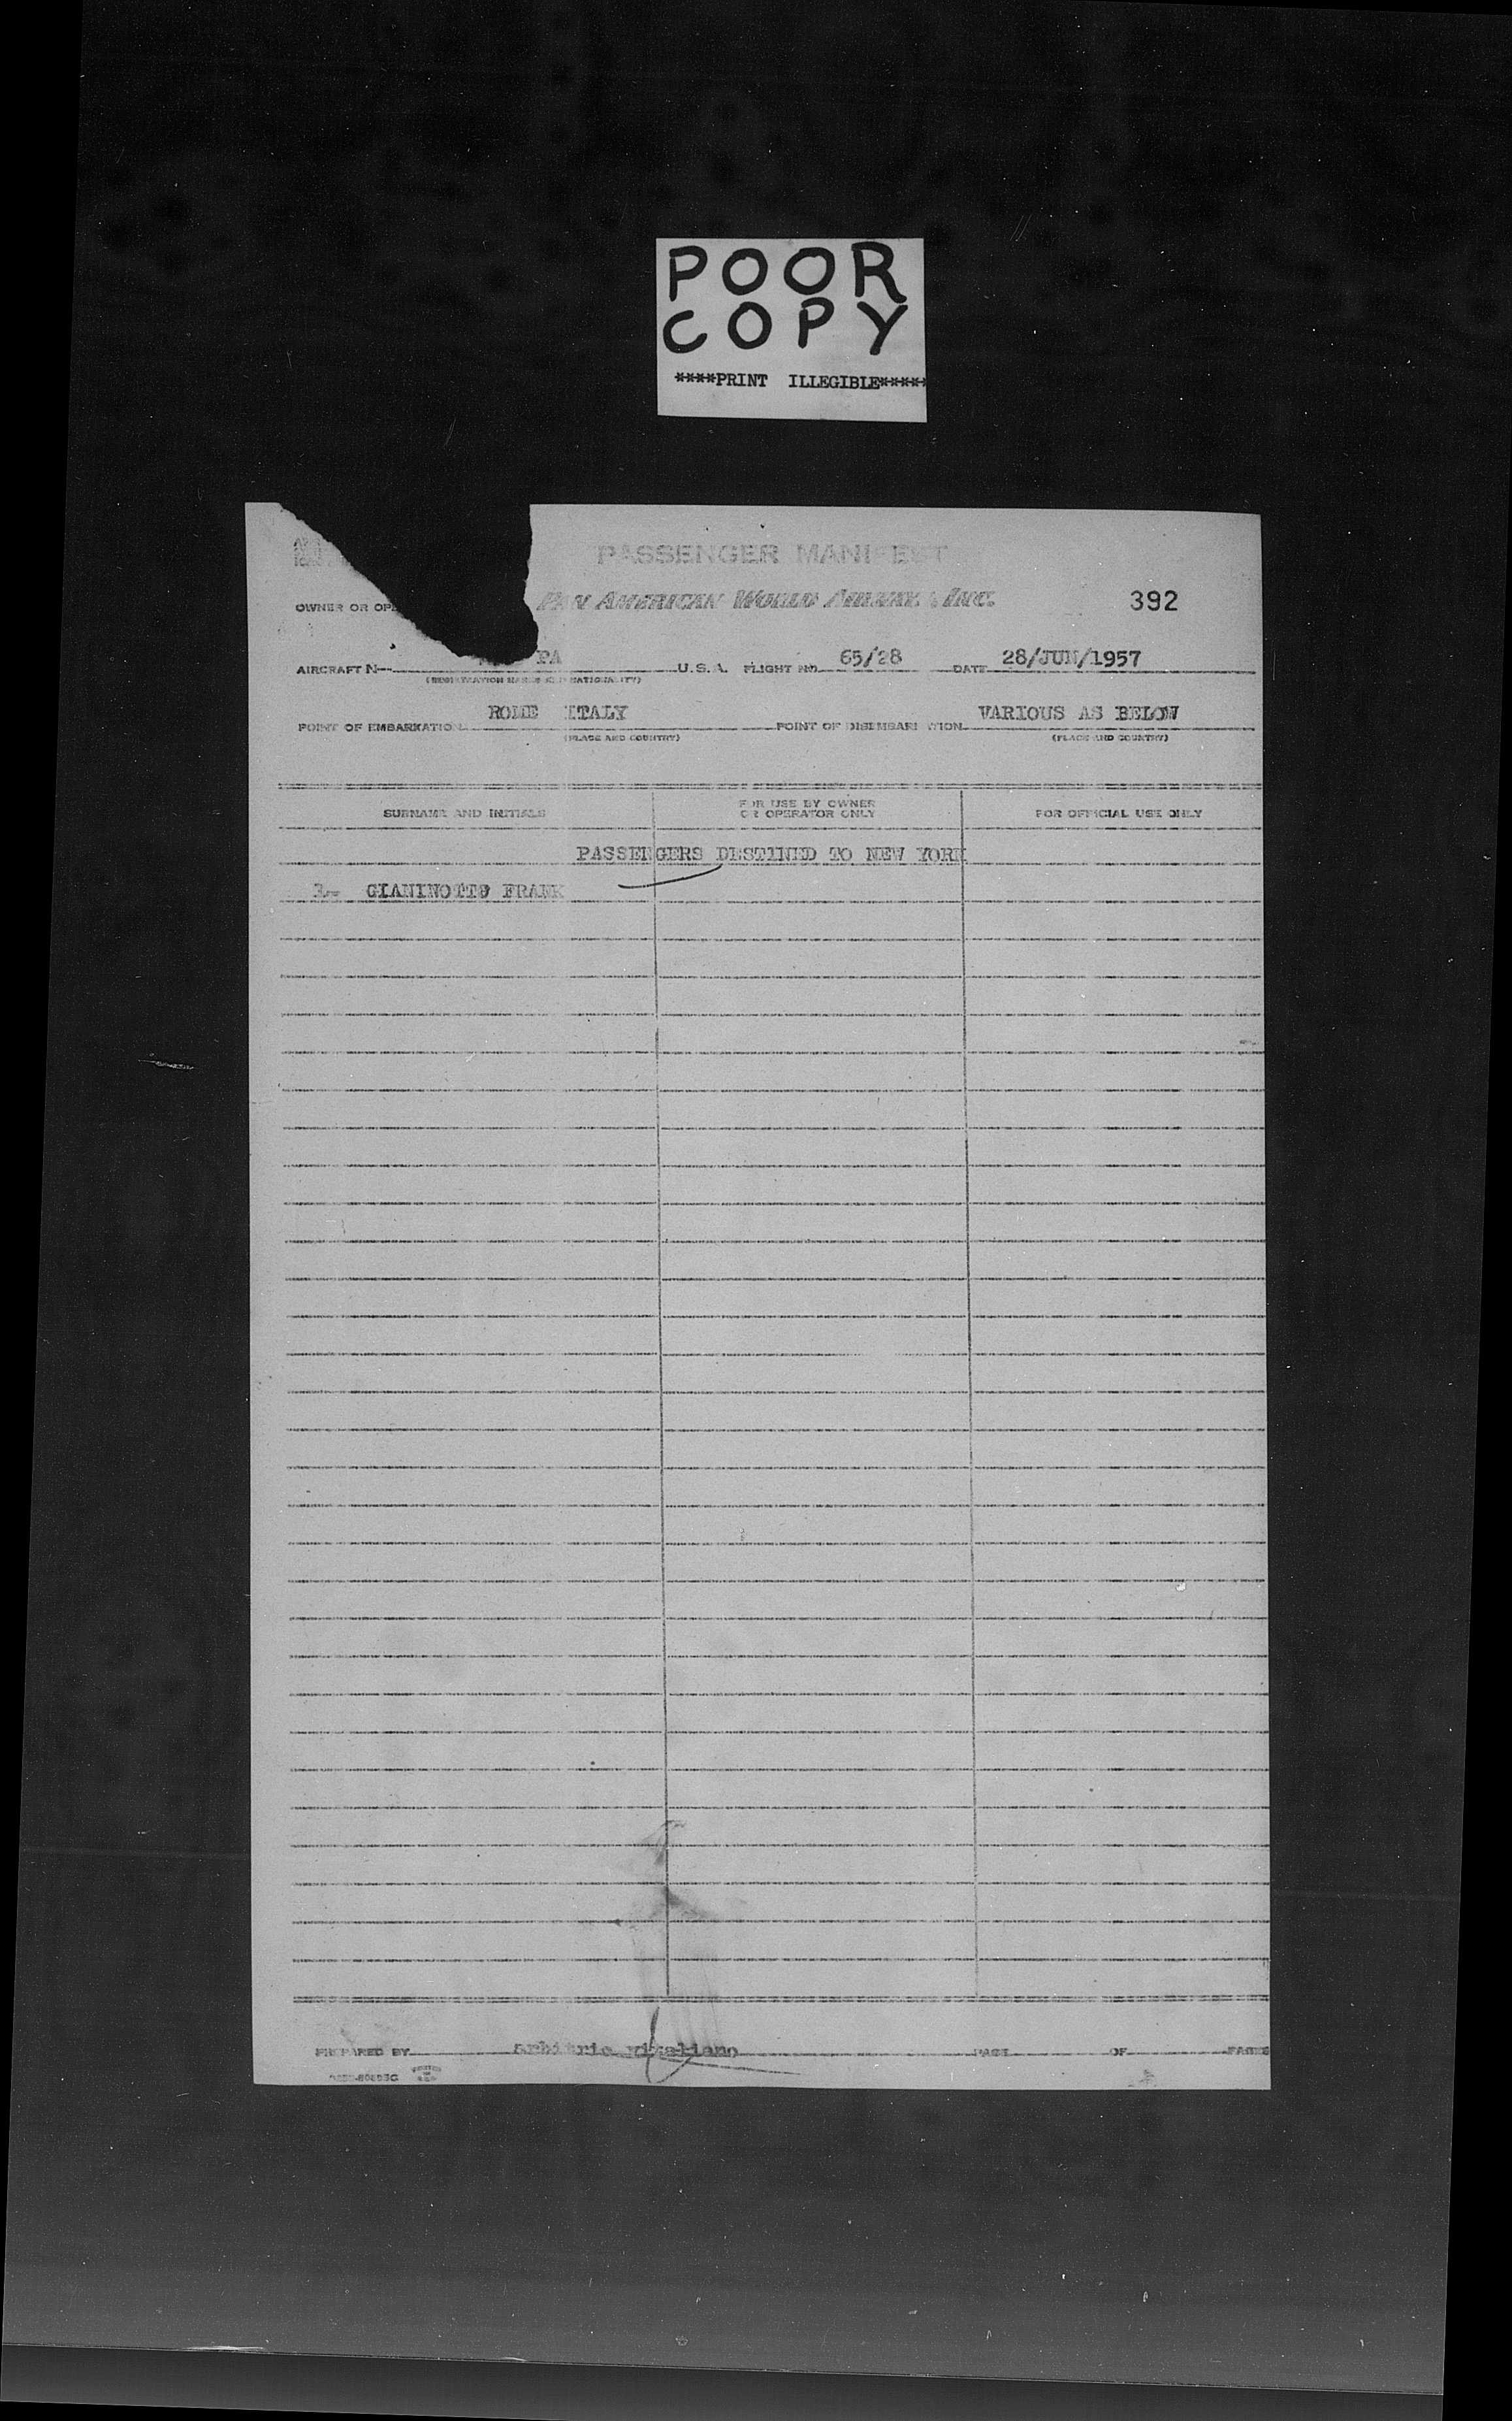 POOR
COPY
****PRINT ILLEGIBLE*****
PASSENGER MANIFEST
OWNER OR OPE
PAN AMERICAN WORLD AIRWAYS INC.
392
AIRCRAFT N— PA U.S.A. FLIGHT NO. 65/28 DATE 28/JUN/1957
(REGISTRATION MARKS AND NATIONALITY)
POINT OF EMBARKATION ROME ITALY POINT OF DISEMBARKATION VARIOUS AS BELOW
(PLACE AND COUNTRY) (PLACE AND COUNTRY)
SURNAME AND INITIALS FOR USE BY OWNER OR OPERATOR ONLY FOR OFFICIAL USE ONLY
PASSENGERS DESTINED TO NEW YORK
1- GIANINOTTO FRANK
PREPARED BY Arbitrio vitaliano PAGE OF PAGES